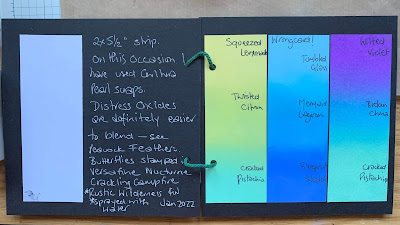 2x5½" strip.
On this occasion I
have used Canthra
Pearl swaps.
Distress Oxides
are definitely easier
to blend - see
Peacock Feathers.
Butterflies stamped in
Versafine Nocturne
Crackling Campfire
*Rustic Wilderness
*Sprayed with Jan 2022
water
Squeezed
Lemonade
Twisted
Citron
Cracked
Pistachio
Wrong
Tumbled
Glass
Mermaid
Lagoon
Wilted
Violet
Cracked
Pistachio